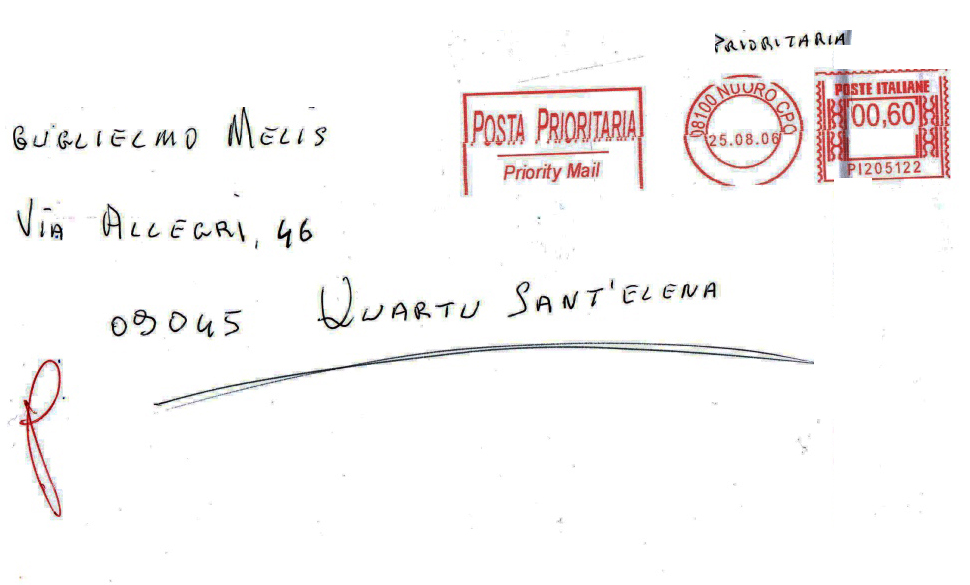 PRIORITARIA
POSTA PRIORITARIA
Priority Mail
08100 NUORO CPO
25.08.06
POSTE ITALIANE
00,60
PI205122
GUGLIELMO MELIS
VIA ALLEGRI, 46
09045 QUARTU SANT'ELENA